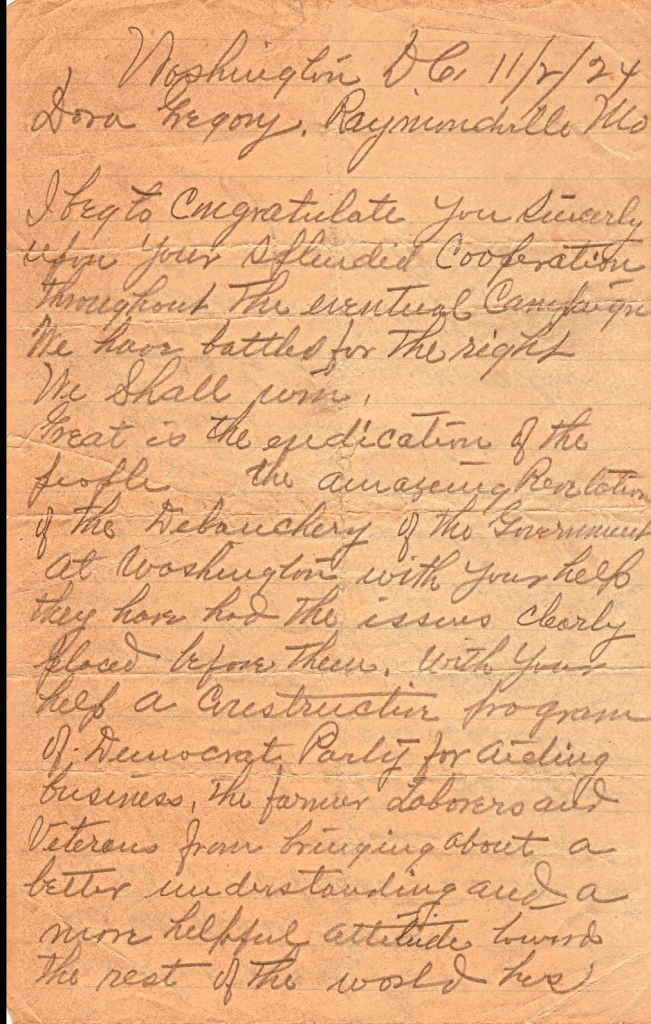 Washington D C. 11/2/24
Dora Gregory, Raymondville Mo
I beg to Congratulate You Sincerly
upon Your Splendid Cooperation
throughout the eventual Campaign
We have battles for the right
We Shall win.
Great is the of the
people the amazeing Revelation
of the Debauchery of the Government
at Washington with your help
they have had the issues clearly
placed before them. With Your
help a Constructive program
of Democrat Party for aiding
business, the farmer Laborers and
Veterans from bringing about a
better understanding and a
more helpful attitude toward
the rest of the world has